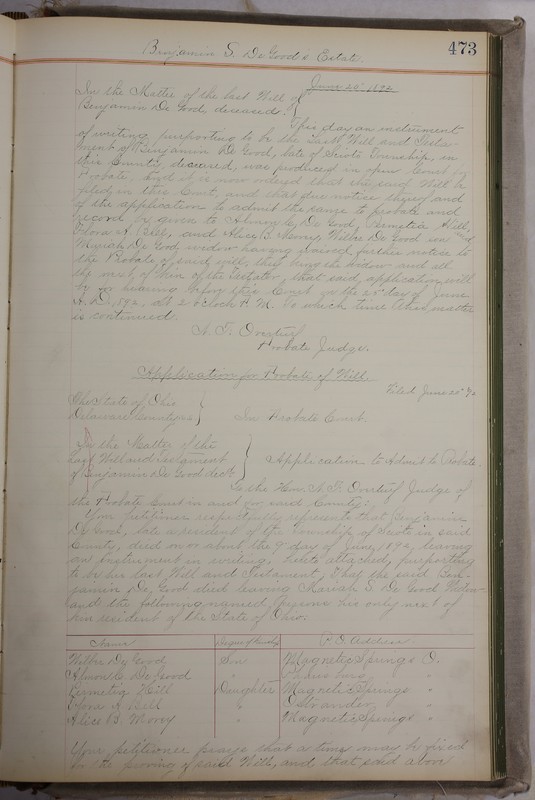 Benjamin S. De Good's Estate.
473
June 20" 1892
In the Matter of the last Will of
Benjamin De Good, deceased.
This day an instrument
of writing, purporting to be the last Will and Testa-
ment of Benjamin De Good, late of Scioto Township, in
this County, deceased, was produced in open Court for
Probate. And it is now ordered that the said Will be
filed in this Court, and that due notice thereof and
of the application to admit the same to probate and
record be given to De Good, Hill,
Flora A Bell, and Alice B. Morry, Wilber De Good and
Mariah De Good, widow having waived further notice to
the Probate of said will, they being the widow and all
the next of kin of the testator, that said application will
be for hearing before this Court on the 25" day of June
A.D. 1892, at 2 o'clock P.M. to which time this matter
is continued.
Probate Judge.
Application for Probate of Will.
Filed June 20"
The State of Ohio
Delaware County ss
In Probate Court.
In the Matter of the
Last Will and Testament
of Benjamin De Good dec'd
Application to Admit to Probate.
To the Hon. Judge of
the Probate Court in and for said County:
Your petitioner respectfully represents that Benjamin
De Good, late a resident of the township of Scioto in said
County, died on or about the 9" day of June, 1892, leaving
an instrument in writing, hereto attached, purporting
to be his last Will and Testament, that the said Ben-
jamin De Good died leaving Mariah S. De Good Widow
and the following named persons his only next of
kin resident of the State of Ohio.
Name Degree of Kinship P.O. Address
Wilber De Good Son Magnetic Springs O.
De Good "
Hill Daughter Magnetic Springs "
Flora A Bell " Ostrander "
Alice B. Morry " Magnetic Springs "
Your petitioner prays that a time may be fixed
for the proving of said Will, and that said above